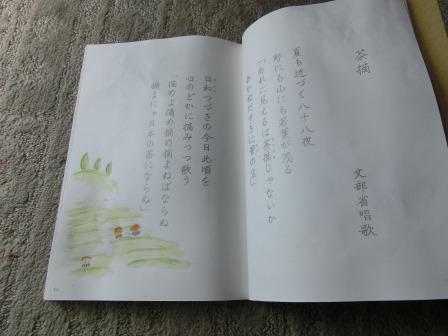 茶摘
文部省唱歌
夏も近づく八十八夜
野にも山にも若葉が茂る
「あれに見えるは茶摘じゃないか
あかねだすきに菅の笠」
日和つづきの今日此頃を
心のどかに摘みつつ歌う
「摘めよ摘め摘め摘まねばならぬ
摘まにゃ日本の茶にならぬ」